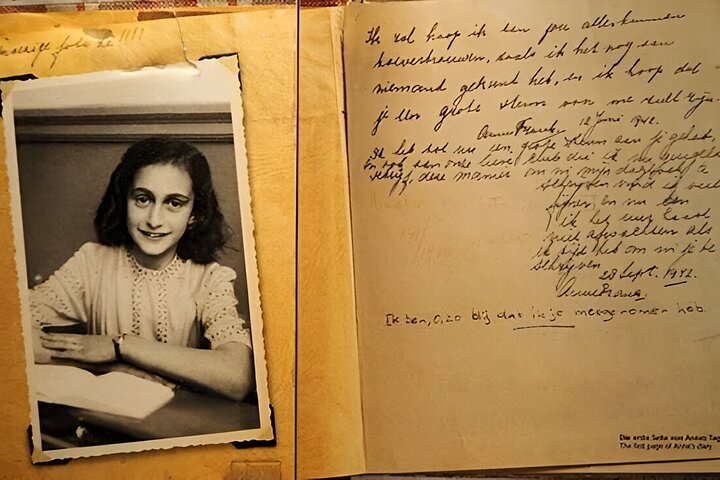 foto hè!!!!
Ik zal hoop ik aan jou alles kunnen
toevertrouwen, zoals ik het nog aan
niemand gekund heb, en ik hoop dat
je een grote steun voor me zult zijn.
Anne Frank. 12 Juni 1942.
Ik heb tot nu een grote steun aan je gehad,
en ook aan onze lieve club die ik nu
schrijf, deze manier om in mijn dagboek
schrijven vind ik veel
fijner en nu kan
ik het uur haast
niet afwachten als
ik tijd heb om in je te
schrijven.
28 Sept. 1942.
Anne Frank.
Ik ben, o, zo blij dat ik je meegenomen heb
Die erste Seite von Annes Tag
The first page of Anne's diary